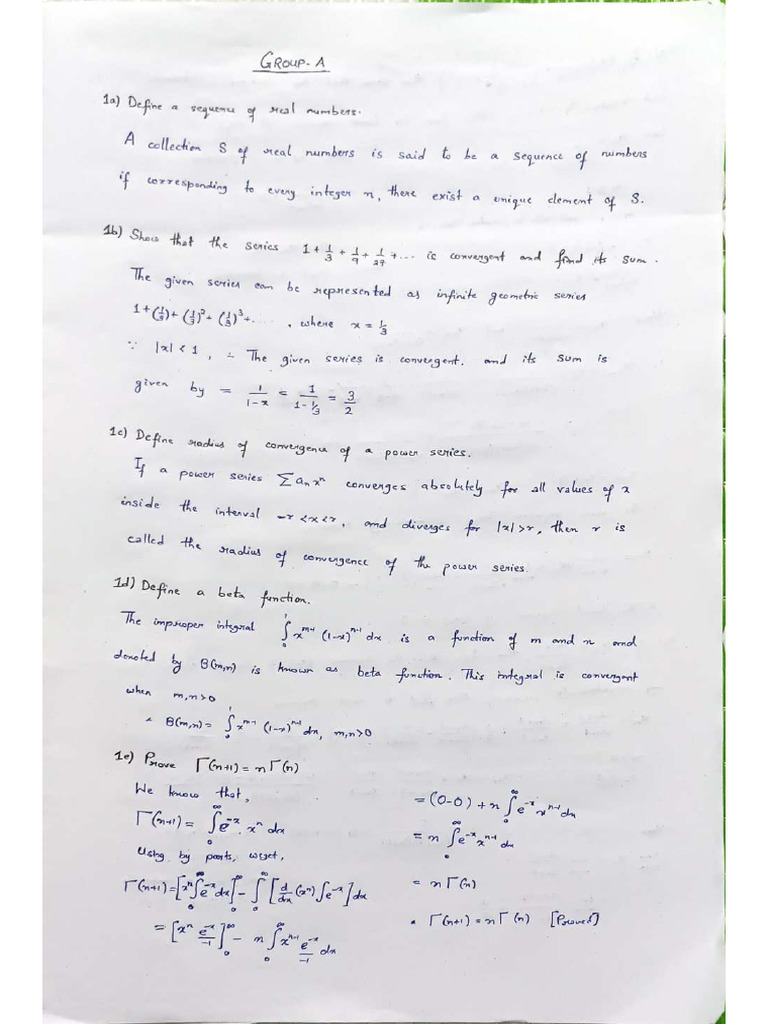 GROUP-A
1a) Define a sequence of real numbers.
A collection S of real numbers is said to be a sequence of numbers
if corresponding to every integer n, there exist a unique element of S.
1b) Show that the series 1 + 1/3 + 1/9 + 1/27 + ... is convergent and find its sum.
The given series can be represented as infinite geometric series
1 + (1/3) + (1/3)² + (1/3)³ + ...., where x = 1/3
∵ |x| < 1, ∴ The given series is convergent. and its sum is
given by = 1/(1-x) = 1/(1-1/3) = 3/2
1c) Define radius of convergence of a power series.
If a power series Σ aₙxⁿ converges absolutely for all values of x
inside the interval -r < x < r, and diverges for |x| > r, then r is
called the radius of convergence of the power series.
1d) Define a beta function.
The improper integral ∫₀¹ x^(m-1) (1-x)^(n-1) dx is a function of m and n and
denoted by B(m,n) is known as beta function. This integral is convergent
when m,n>0
∴ B(m,n) = ∫₀¹ x^(m-1) (1-x)^(n-1) dx, m,n>0
1e) Prove Γ(n+1) = nΓ(n)
We know that,
Γ(n+1) = ∫₀^∞ e^(-x) . xⁿ dx
Using by parts, we get,
Γ(n+1) = [xⁿ ∫₀^∞ e^(-x) dx]₀^∞ - ∫₀^∞ [d/dx (xⁿ) ∫ e^(-x)] dx
= [xⁿ e^(-x)/-1]₀^∞ - n ∫₀^∞ x^(n-1) e^(-x)/-1 dx
= (0-0) + n ∫₀^∞ e^(-x) x^(n-1) dx
= n ∫₀^∞ e^(-x) x^(n-1) dx
= nΓ(n)
∴ Γ(n+1) = nΓ(n) [Proved]